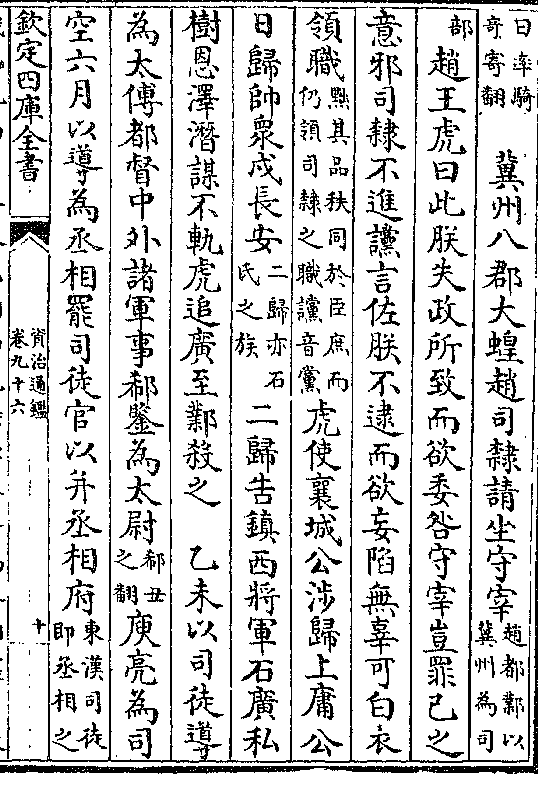 日率騎
奇寄翻
冀州八郡大蝗趙司隸請坐守宰
趙都鄴以
冀州為司
部
趙王虎曰此朕失政所致而欲委咎守宰豈罪己之
意邪司隸不進讜言佐朕不逮而欲妄陷無辜可白衣
領職
黜其品秩同於臣庶而
仍領司隸之職讜音黨
虎使襄城公涉歸上庸公
日歸帥衆戍長安
二歸亦石
氏之族
二歸告鎮西將軍石廣私
樹恩澤潛謀不軌虎追廣至鄴殺之
乙未以司徒導
為太傅都督中外諸軍事郗鑒為太尉
郗丑
之翻
庾亮為司
空六月以導為丞相罷司徒官以并丞相府
東漢司徒
即丞相之
欽定四庫全書
資治通鑑
卷九十六
十